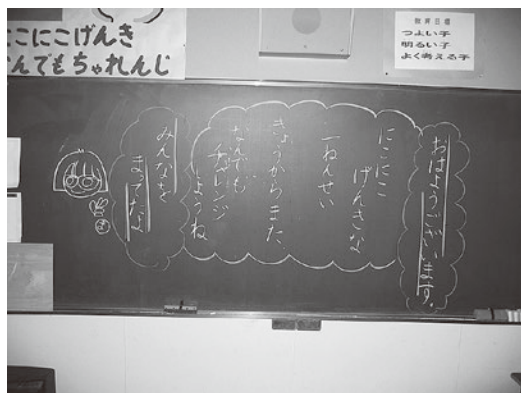 にこにこげんき
なんでもちゃれんじ
教育目標
つよい子
明るい子
よく考える子
おはようございます。
にこにこ
げんきな
一ねんせい
きょうからまた、
なんでも
チャレンジ
しようね
みんなを
まってたよ